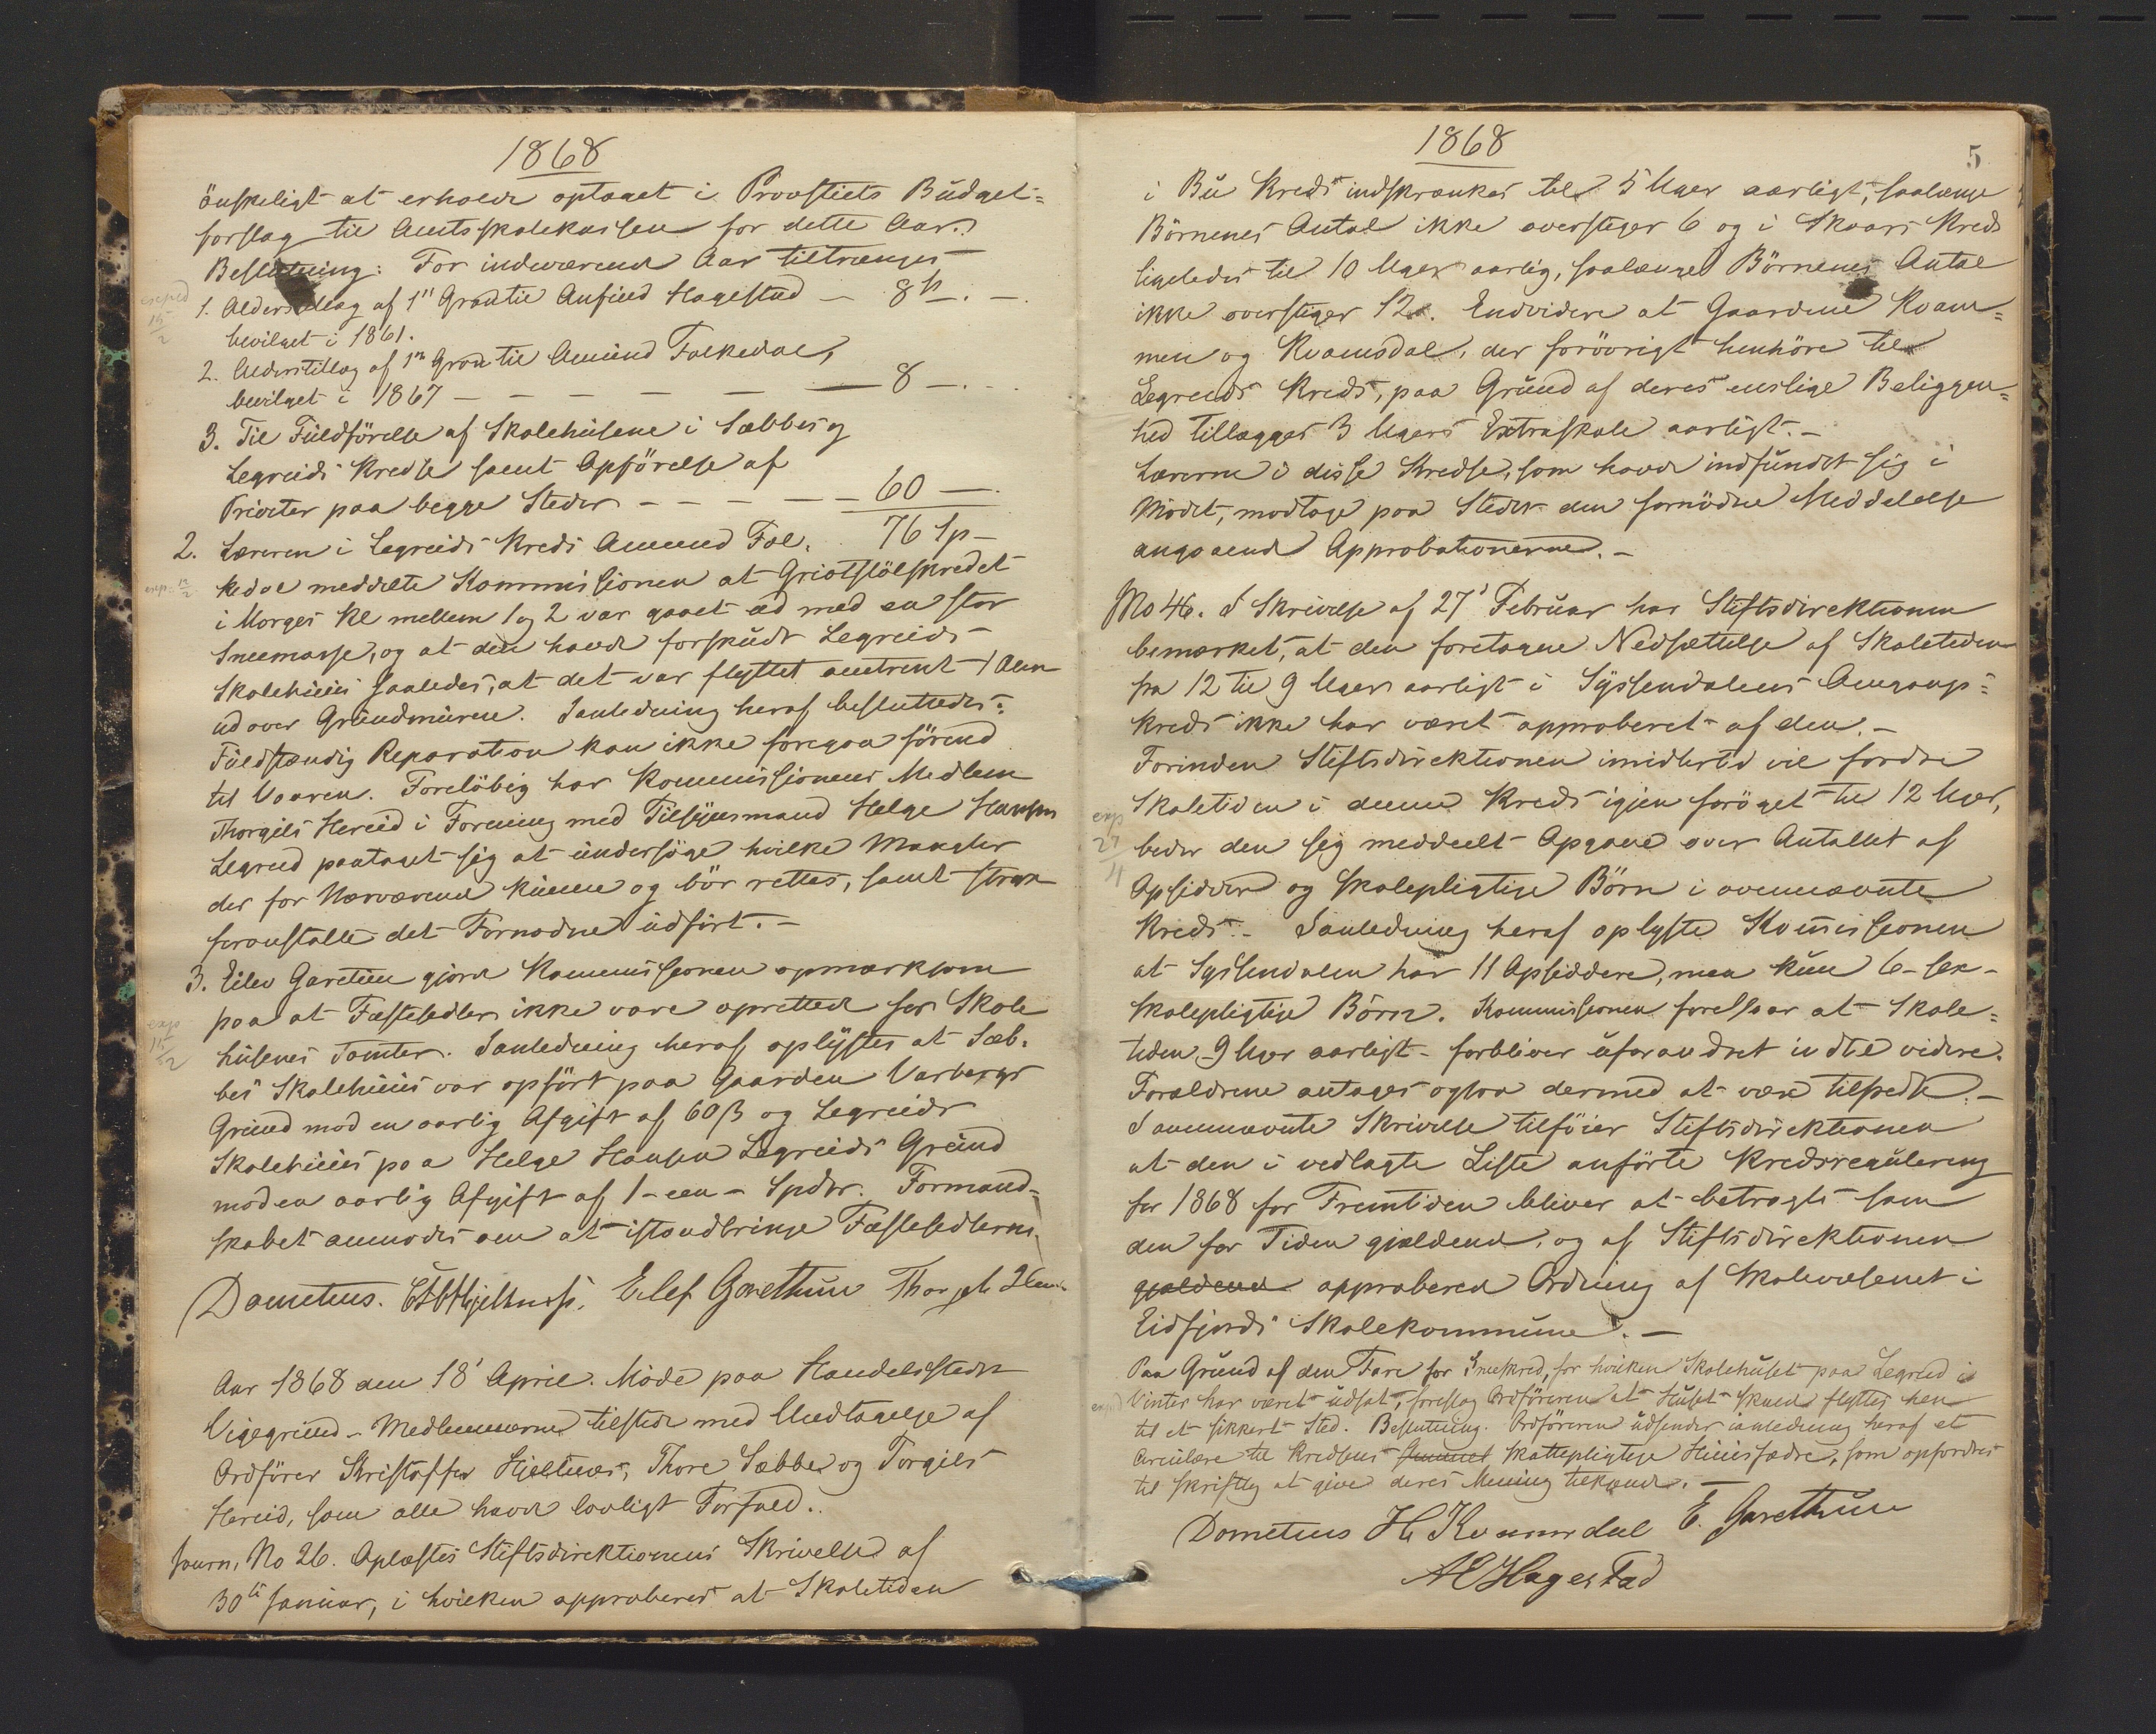 1868
önskeligt at erholde optaget i Provstiets Budget=
forslag til Amtsskolekassen for dette Aar.
Beslutning: For indeværende Aar tiltrænges
exped 15/2
1. Alderstillæg af 1ste Grad til Anfind Hagestad — 8 sp. —.
bevilget i 1861.
2. Alderstillæg af 1ste Grad til Amund Falkedal,
bevilget i 1867 — — — — — — 8 —. -.
3. Til Fuldførelse af Skolehusene i Sæbbes og
Legreids Kredse samt Opførelse af
Priveter paa begge Steder — — — — — 60 —.
76 Sp —
2. Læreren i Legreids Kreds Amund Fal-
exp. 15/2
kedal meddelte Kommissionen at Griotstölskredet
i Morges Kl mellem 1 og 2 var gaaet ud med en stor
Sneemasse, og at den havde forskudt Legreids
Skolehuus saaledes, at det var flyttet omtrent 1 Alen
ud over Grundmuren. I anledning heraf besluttedes:
Fuldstændig Reparation kan ikke foregaa förend
til Vaaren. Forelöbig har Kommissionens Medlem
Thorgils Hereid i Forening med Tilsynsmand Helge Hansen
Legreid paataget sig at undersöge hvilke Mangler
der for Nærværende kunne og bör rettes, samt strax
foranstalte det Fornødne udfört. —
3. Eilev Garetun gjorde Kommissionen opmærksom
paa at Fæstesedler ikke vare oprettede for Skole
exp 15/2
husenes Tomter. I anledning heraf oplystes at Sæb-
bes Skolehuus var opfört paa Gaarden Varbergs
Grund mod en aarlig Afgift af 60 ß og Legreids
Skolehuus paa Helge Hansen Legreids Grund
mod en aarlig Afgift af 1 - een - Spdlr. Formand-
skabet anmodes om at istandbringe Fæstesedlerne.
Dometius. Elef Garethun Thorgils
Aar 1868 den 18' April. Möde paa Handelsstedet
Vigegrund - Medlemmerne tilstede med Undtagelse af
Ordförer Kristoffer Hjeltnæs, Thore Sæbbe og Torgils
Hereid, som alle havde lovligt Forfald.
Journ. No 26. Oplæstes Stiftsdirektionens Skrivelse af
30te Januar, i hvilken approberes at Skoletiden
1868
5
i Bu Kreds indskrænkes til 5 Uger aarligt, saalænge
Börnenes Antal ikke overstiger 6 og i Skaars Kreds
ligeledes til 10 Uger aarlig, saalænge Börnenes Antal
ikke overstiger 12. Endvidere at Gaardene Kvam=
men og Kvamsdal, der forövrigt henhöre til
Legreids Kreds, paa Grund af deres enslige Beliggen=
hed tillægges 3 Ugers Extraskole aarligt. —
Lærerne i disse Kredse, som havde indfundet sig i
Mödet, modtage paa Stedet den fornödne Meddelelse
angaaende Approbationerne. —
No 46. I Skrivelse af 27' Februar har Stiftsdirektionen
bemærket, at den foretagne Nedsættelse af Skoletiden
fra 12 til 9 Uger aarligt i Syssendalens Omgangs=
kreds ikke har været approberet af den. —
Forinden Stiftsdirektionen imidlertid vil fordre
Skoletiden i denne Kreds igjen foröget til 12 Uger,
exp 27/4
beder den sig meddeelt Opgave over Antallet af
Opsiddere og skolepligtige Börn i ovennævnte
Kreds. - I anledning heraf oplyste Kommissionen
at Syssendalen har 11 Opsiddere, men kun 6 - sex -
skolepligtige Börn. Kommissionen foreslaar at Skole=
tiden 9 Uger aarligt - forbliver uforandret indtil videre.
Forældrene antages ogsaa dermed at være tilfreds. —
I ovennævnte Skrivelse tilföier Stiftsdirektionen
at den i vedlagte Liste anförte Kredsregulering
for 1868 for Fremtiden bliver at betragte som
den for Tiden gjældende, og af Stiftsdirektionen
gjældende approberede Ordning af Skolevæsenet i
Eidfjords Skolekommune. —
Paa Grund af den Fare for Sneeskred, for hvilken Skolehuset paa Legreid i
exp
Vinter har været udsat, foreslog Ordföreren at Huset skulde flyttes hen
til et sikkert Sted. Beslutning. Ordföreren udsender i anledning heraf et
Circulære til Kredsens skattepligtige Huusfædre, som opfordres
til skriftlig at give deres Mening tilkjende. —
Dometius H. Kvamsdal E. Garethun
AO Hagestad